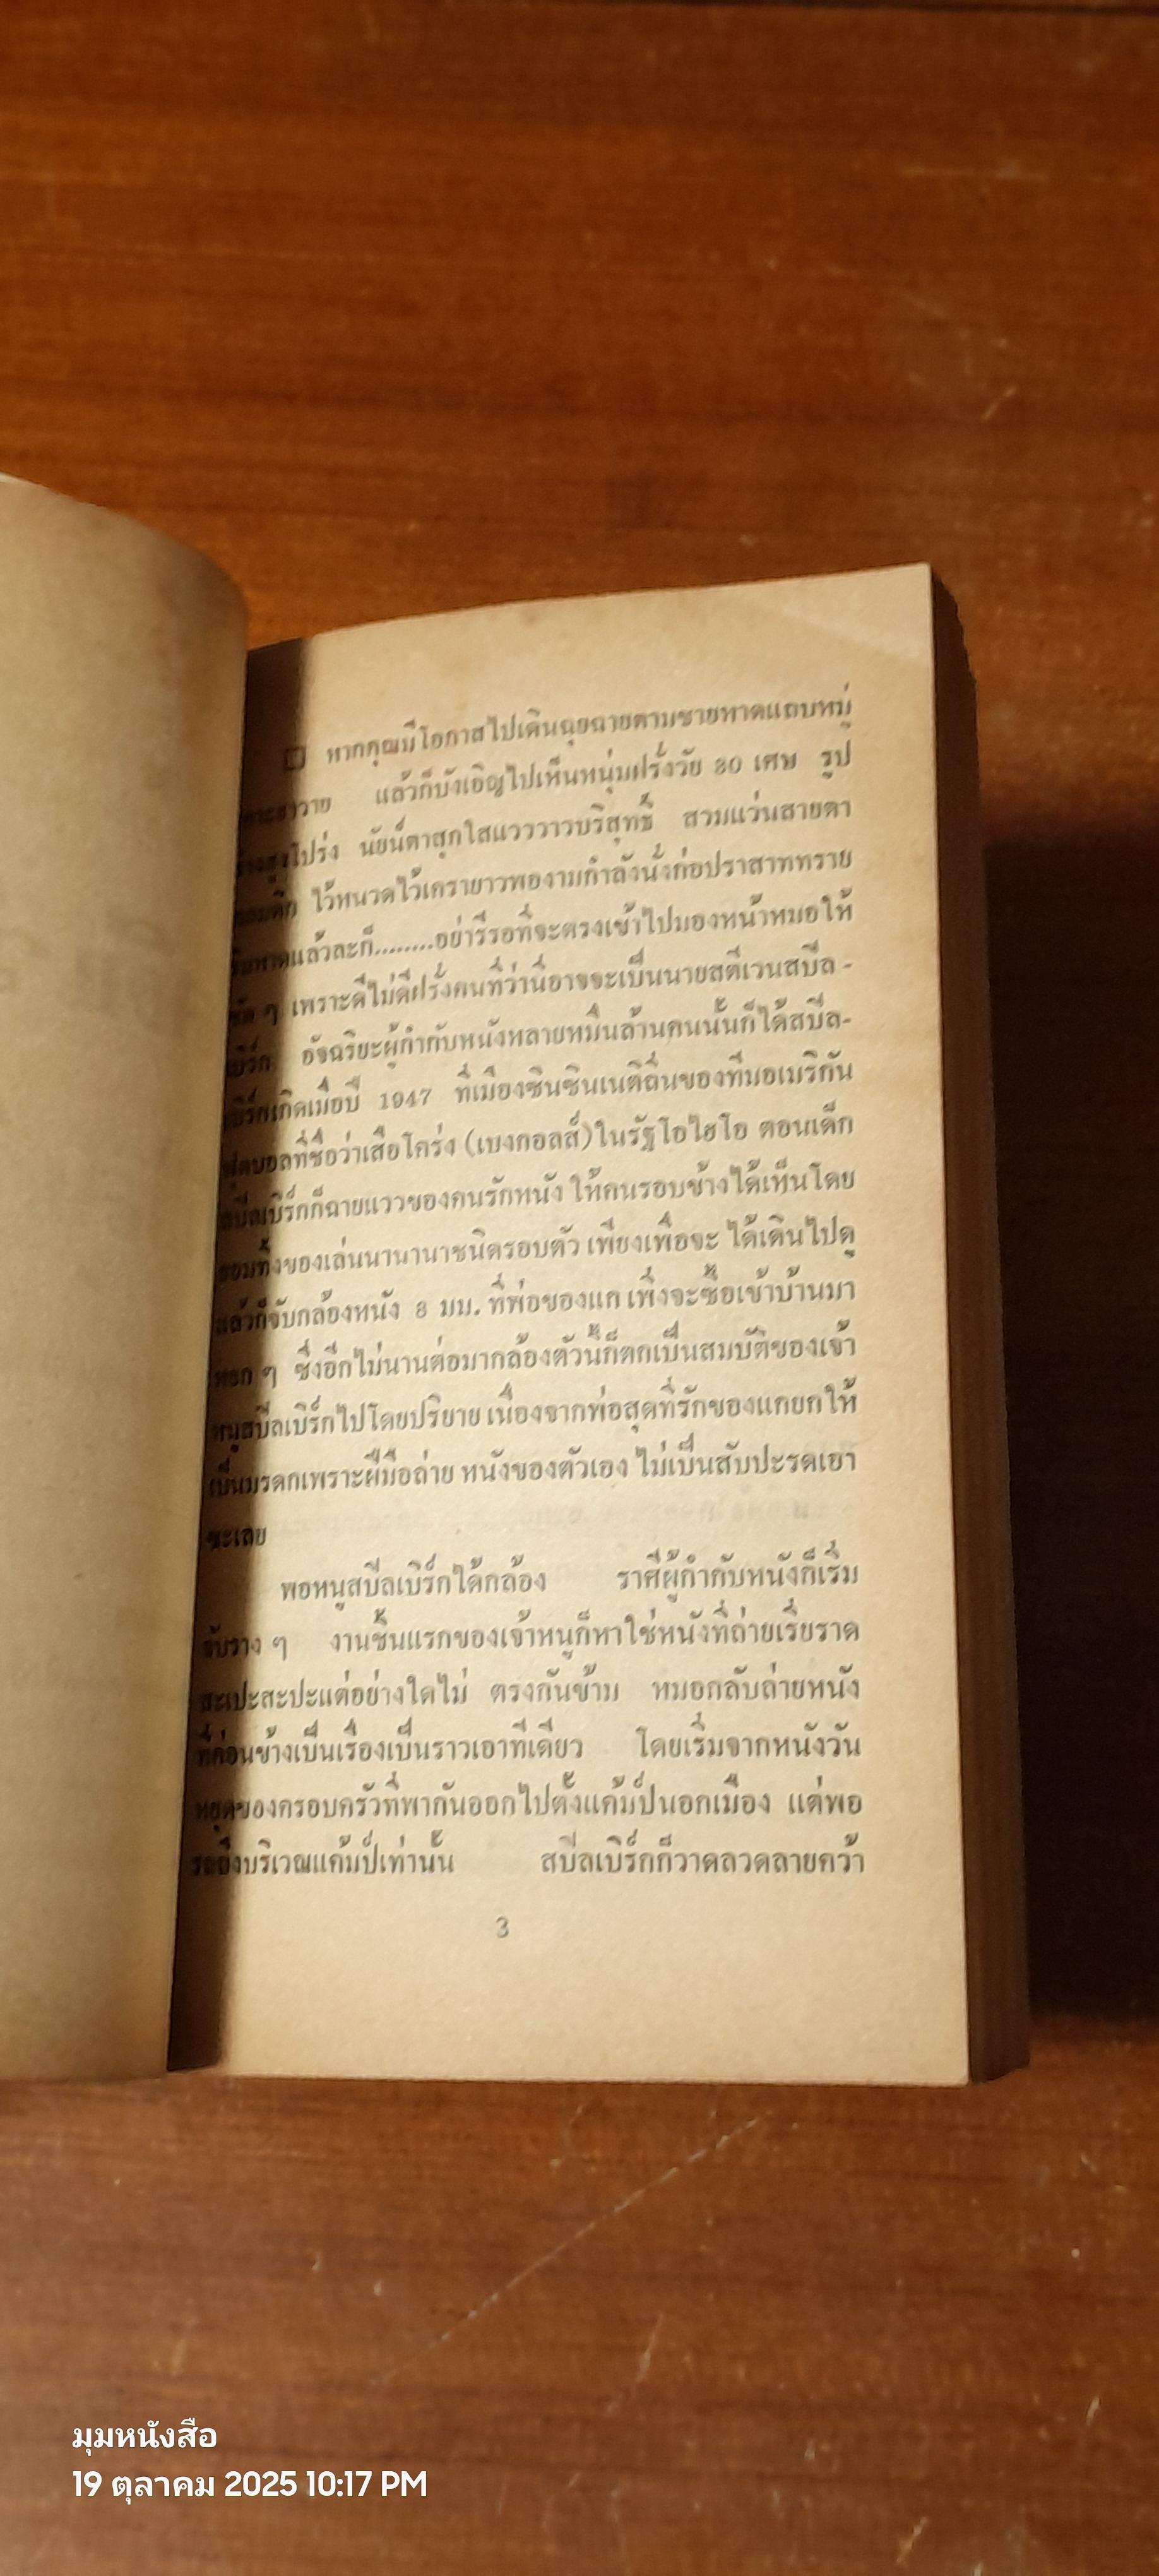 หากคุณมีโอกาสไปเดินฉุยฉายตามชายหาดแถบหมู่
เกาะฮาวาย แล้วก็บังเอิญไปเห็นหนุ่มฝรั่งวัย 30 เศษ รูป
ร่างสูงโปร่ง นัยน์ตาสุกใสแวววาวบริสุทธิ์ สวมแว่นสายตา
ไว้หนวดไว้เครายาวพองามกำลังนั่งก่อปราสาททราย
ริมหาดแล้วละก็........อย่ารีรอที่จะตรงเข้าไปมองหน้าหมอให้
ชัด ๆ เพราะดีไม่ดีฝรั่งคนที่ว่านี้อาจจะเป็นนายสตีเวนสปีล-
เบิร์ก อัจฉริยะผู้กำกับหนังหลายหมื่นล้านคนนั้นก็ได้สปีล-
เบิร์คเกิดเมื่อปี 1947 ที่เมืองซินซินเนติถิ่นของทีมอเมริกัน
ฟุตบอลที่ชื่อว่าเสือโคร่ง (เบงกอลส์) ในรัฐโอไฮโอ ตอนเด็ก
สปีลเบิร์กก็ฉายแววของคนรักหนัง ให้คนรอบข้างได้เห็นโดย
ยอมทิ้งของเล่นนานานาชนิดรอบตัว เพียงเพื่อจะ ได้เดินไปดู
แล้วก็จับกล้องหนัง 8 มม. ที่พ่อของแก เพิ่งจะซื้อเข้าบ้านมา
หยก ๆ ซึ่งอีกไม่นานต่อมากล้องตัวนี้ก็ตกเป็นสมบัติของเจ้า
หนูสปีลเบิร์กไปโดยปริยาย เนื่องจากพ่อสุดที่รักของแกยกให้
เป็นมรดกเพราะฝีมือถ่าย หนังของตัวเอง ไม่เป็นสับปะรดเอา
ซะเลย
พอหนูสปีลเบิร์กได้กล้อง ราศีผู้กำกับหนังก็เริ่ม
จับราง ๆ งานชิ้นแรกของเจ้าหนูก็หาใช่หนังที่ถ่ายเรี่ยราด
สะเปะสะปะแต่อย่างใดไม่ ตรงกันข้าม หมอกลับถ่ายหนัง
ที่ค่อนข้างเป็นเรื่องเป็นราวเอาทีเดียว โดยเริ่มจากหนังวัน
หยุดของครอบครัวที่พากันออกไปตั้งแค้มป์นอกเมือง แต่พอ
รถถึงบริเวณแค้มป์เท่านั้น สปีลเบิร์กก็วาดลวดลายคว้า
3
มุมหนังสือ
19 ตุลาคม 2025 10:17 PM